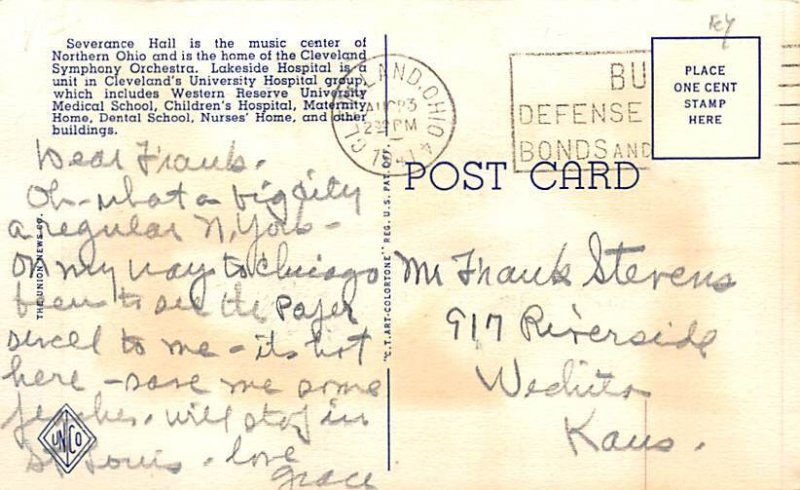 Fey
Severance Hall is the music center of
Northern Ohio and is the home of the Cleveland
Symphony Orchestra. Lakeside Hospital is a
unit in Cleveland's University Hospital group,
which includes Western Reserve University
Medical School, Children's Hospital, Maternity
Home, Dental School, Nurses' Home, and other
buildings.
Dear Frank.
Oh - what a big city
a regular N. York -
On my way to Chicago
been to see the
to me - its hot
here - save me some
will stop in
St Louis. love
Grace
THE UNION NEWS CO.
UNCO
"C.T. ART-COLORTONE" REG. U.S. PAT. OFF.
CLEVELAND, OHIO 4
AUG 3
2 PM
1941
BU
DEFENSE
BONDS AND
PLACE
ONE CENT
STAMP
HERE
POST CARD
Mr Frank Stevens
917 Riverside
Wechita
Kans.